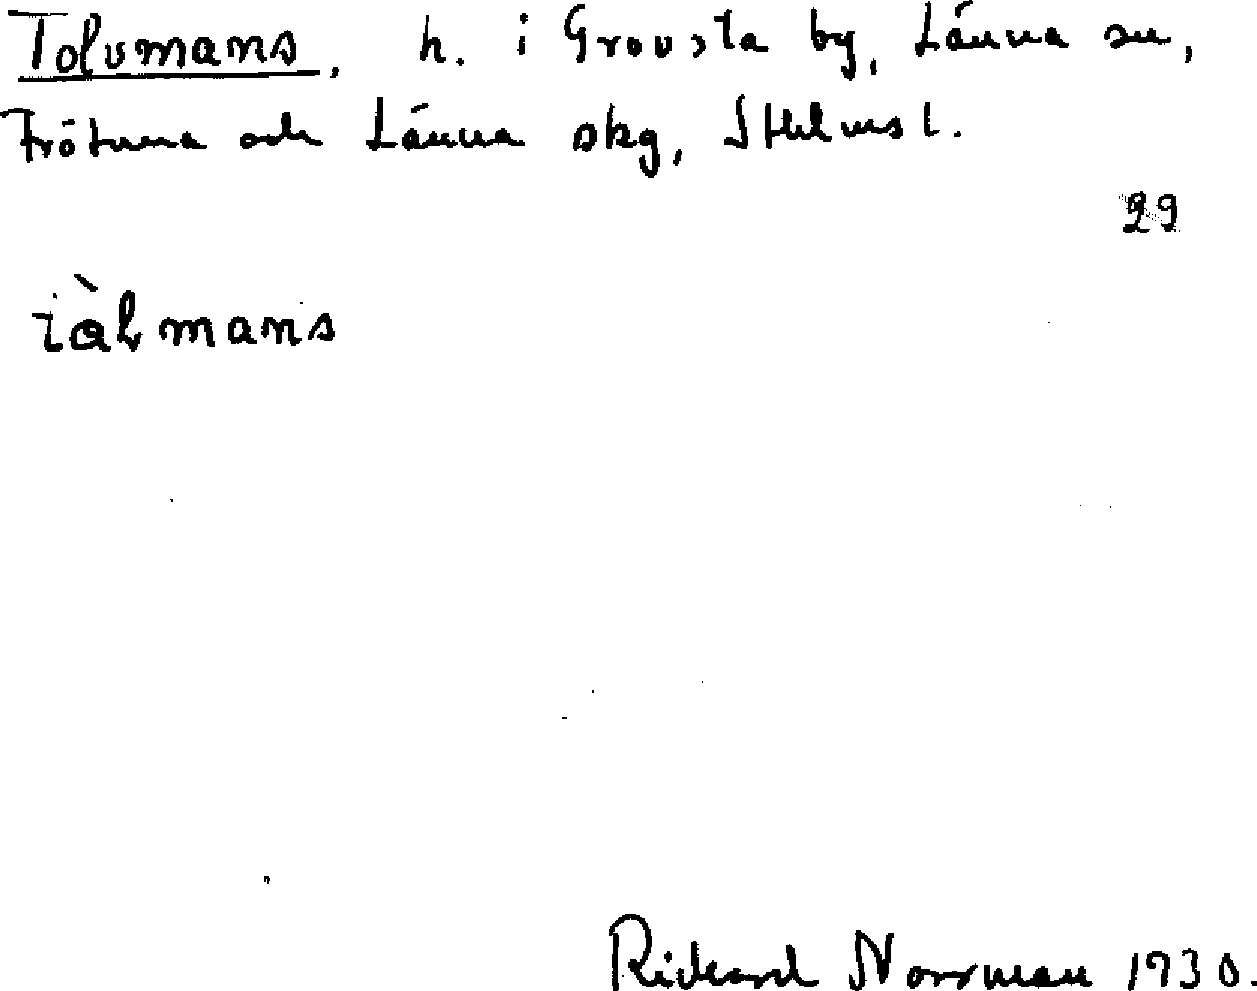 Tolvmans, h. i Grovsta by, Länna sn,
Frötuna och Länna skg, Sthlms l.
29
mans
Rickard Norrman 1930.